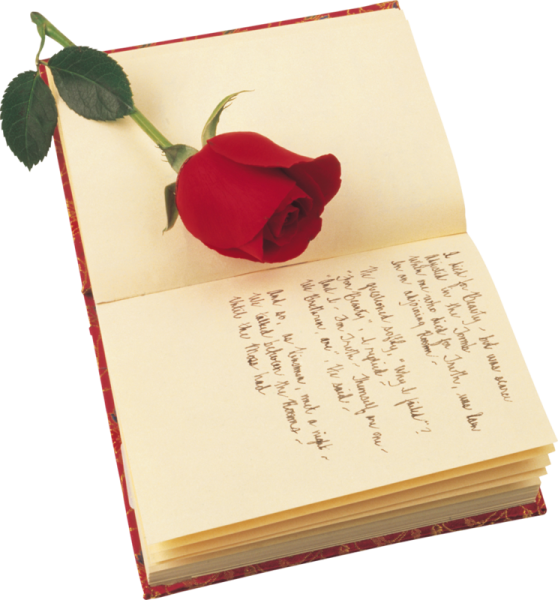 I died for Beauty - but was scarce
Adjusted in the Tomb
When one who died for Truth, was lain
In an adjoining Room
He questioned softly, "Why I failed"?
"For Beauty", I replied -
"And I - For Truth - Themself are one -
We Brethren, are", He said -
And so, as Kinsmen, met a night -
We talked between the Rooms -
Until the Moss had